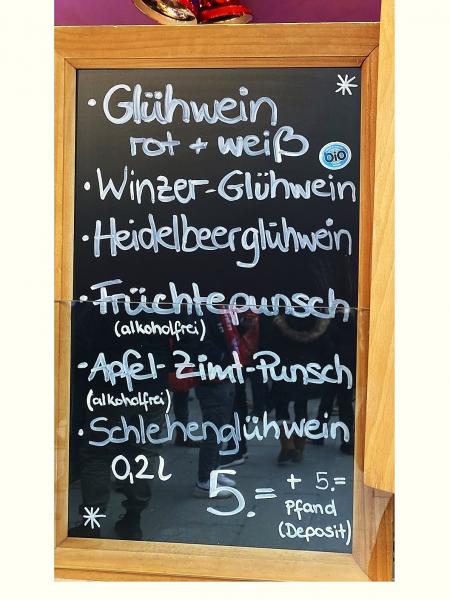 · Glühwein
rot + weiß
bio
· Winzer-Glühwein
· Heidelbeerglühwein
· Früchtepunsch
(alkoholfrei)
· Apfel-Zimt-Punsch
(alkoholfrei)
· Schlehenglühwein
0,2 l
5.= + 5.=
Pfand
(Deposit)